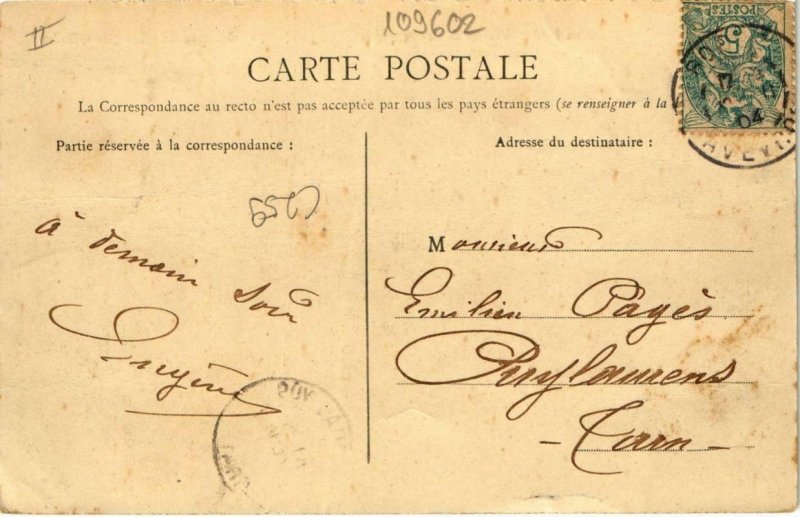 II
109602
CARTE POSTALE
La Correspondance au recto n'est pas acceptée par tous les pays étrangers (se renseigner à la
Partie réservée à la correspondance :
Adresse du destinataire :
à demain soir
Eugène
Monsieur
Emilien Pagès
Puylaurens
- Tarn -
POSTES
5
04
AVEYRON